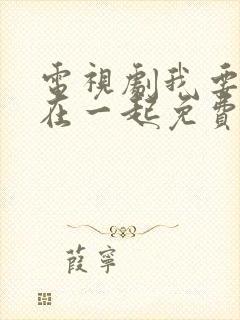 電視劇我要
在一起免費
葭寧